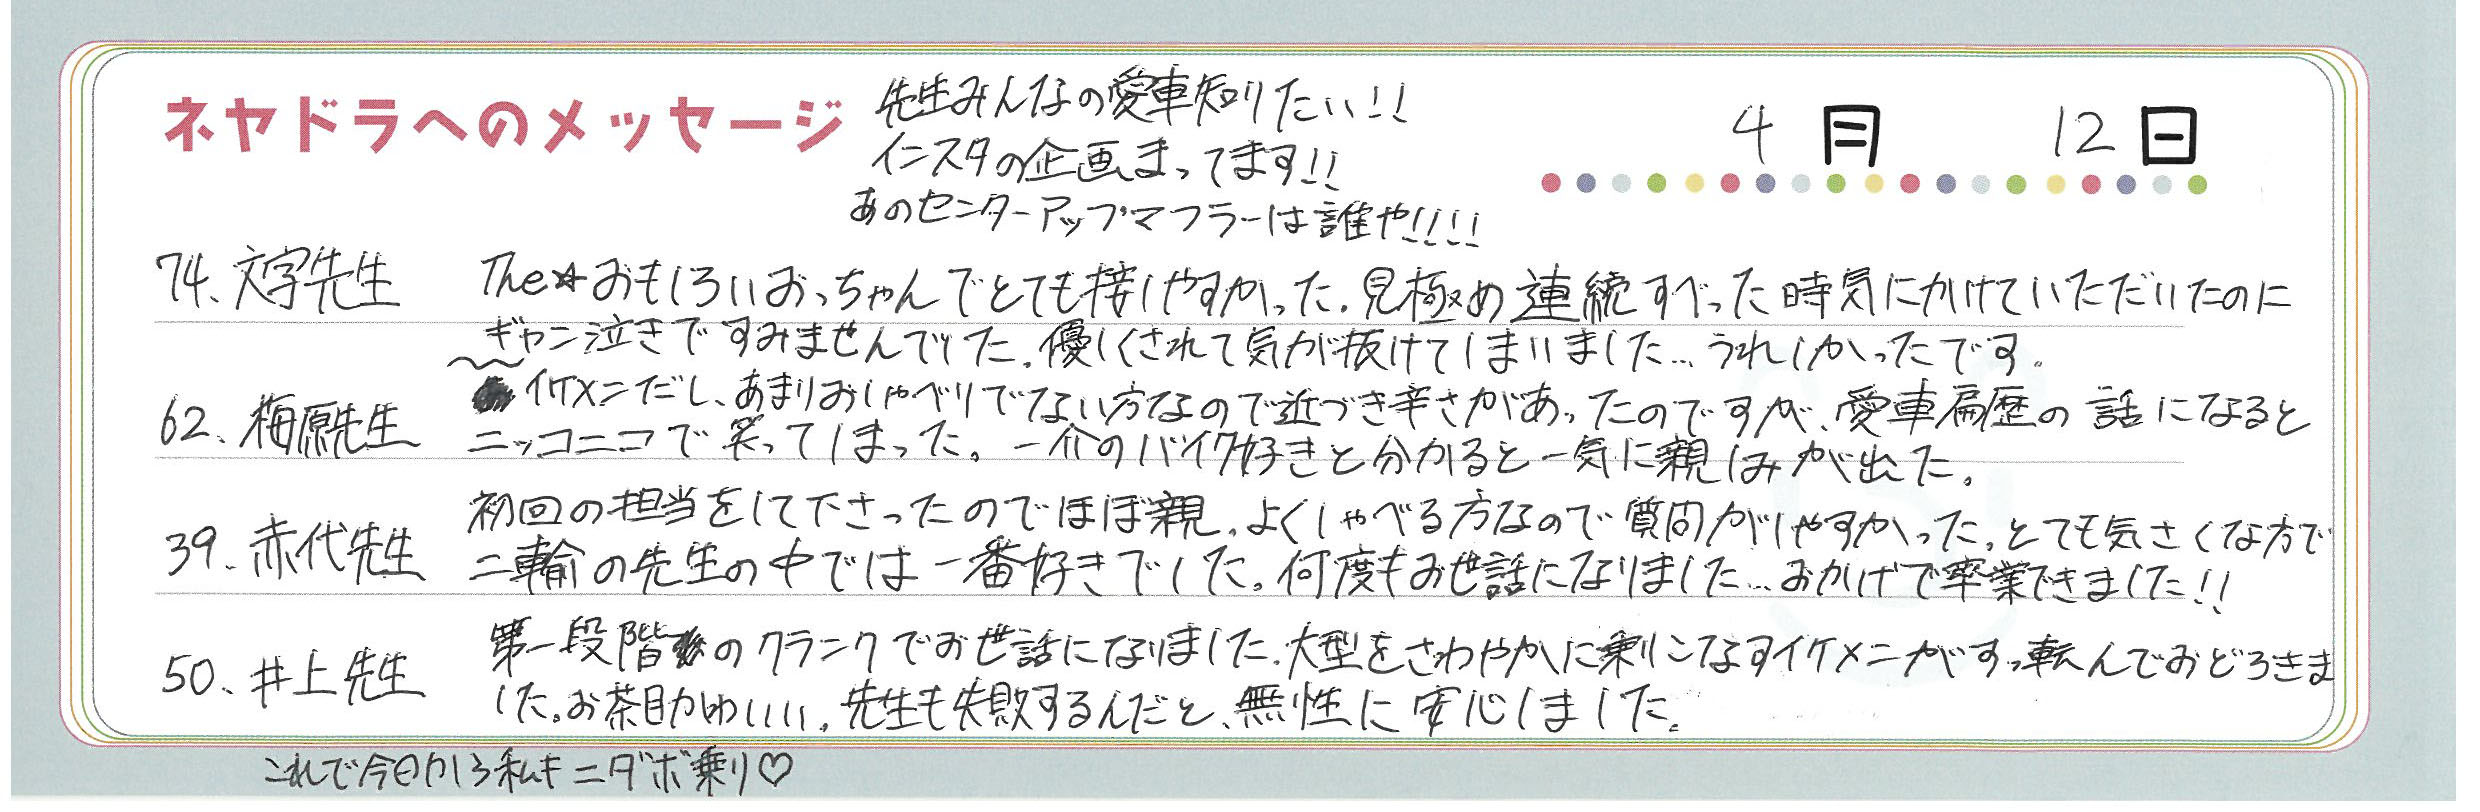 ネヤドラへのメッセージ
先生みんなの愛車知りたい!!
インスタの企画まってます!!
あのセンターアップマフラーは誰や!!!!
4月 12日
74. 文字先生
The☆おもしろいおっちゃんでとても接しやすかった。見極め連続すべった時気にかけていただいたのに
ギャン泣きですみませんでした。優しくされて気が抜けてしまいました…うれしかったです。
62. 梅原先生
イケメンだし、あまりおしゃべりでない方なので近づき辛さがあったのですが、愛車扁歴の話になると
ニッコニコで笑ってしまった。一介のバイク好きと分かると一気に親しみが出た。
39. 赤代先生
初回の担当をして下さったのでほぼ親。よくしゃべる方なので質問がしやすかった。とても気さくな方で
二輪の先生の中では一番好きでした。何度もお世話になりました…おかげで卒業できました!!
50. 井上先生
第一段階のクランクでお世話になりました。大型をさわやかに乗りこなすイケメンがすっ転んでおどろきま
した。お茶目かわいい。先生も失敗するんだと、無性に安心しました。
これで今日から私もニダボ乗り♡